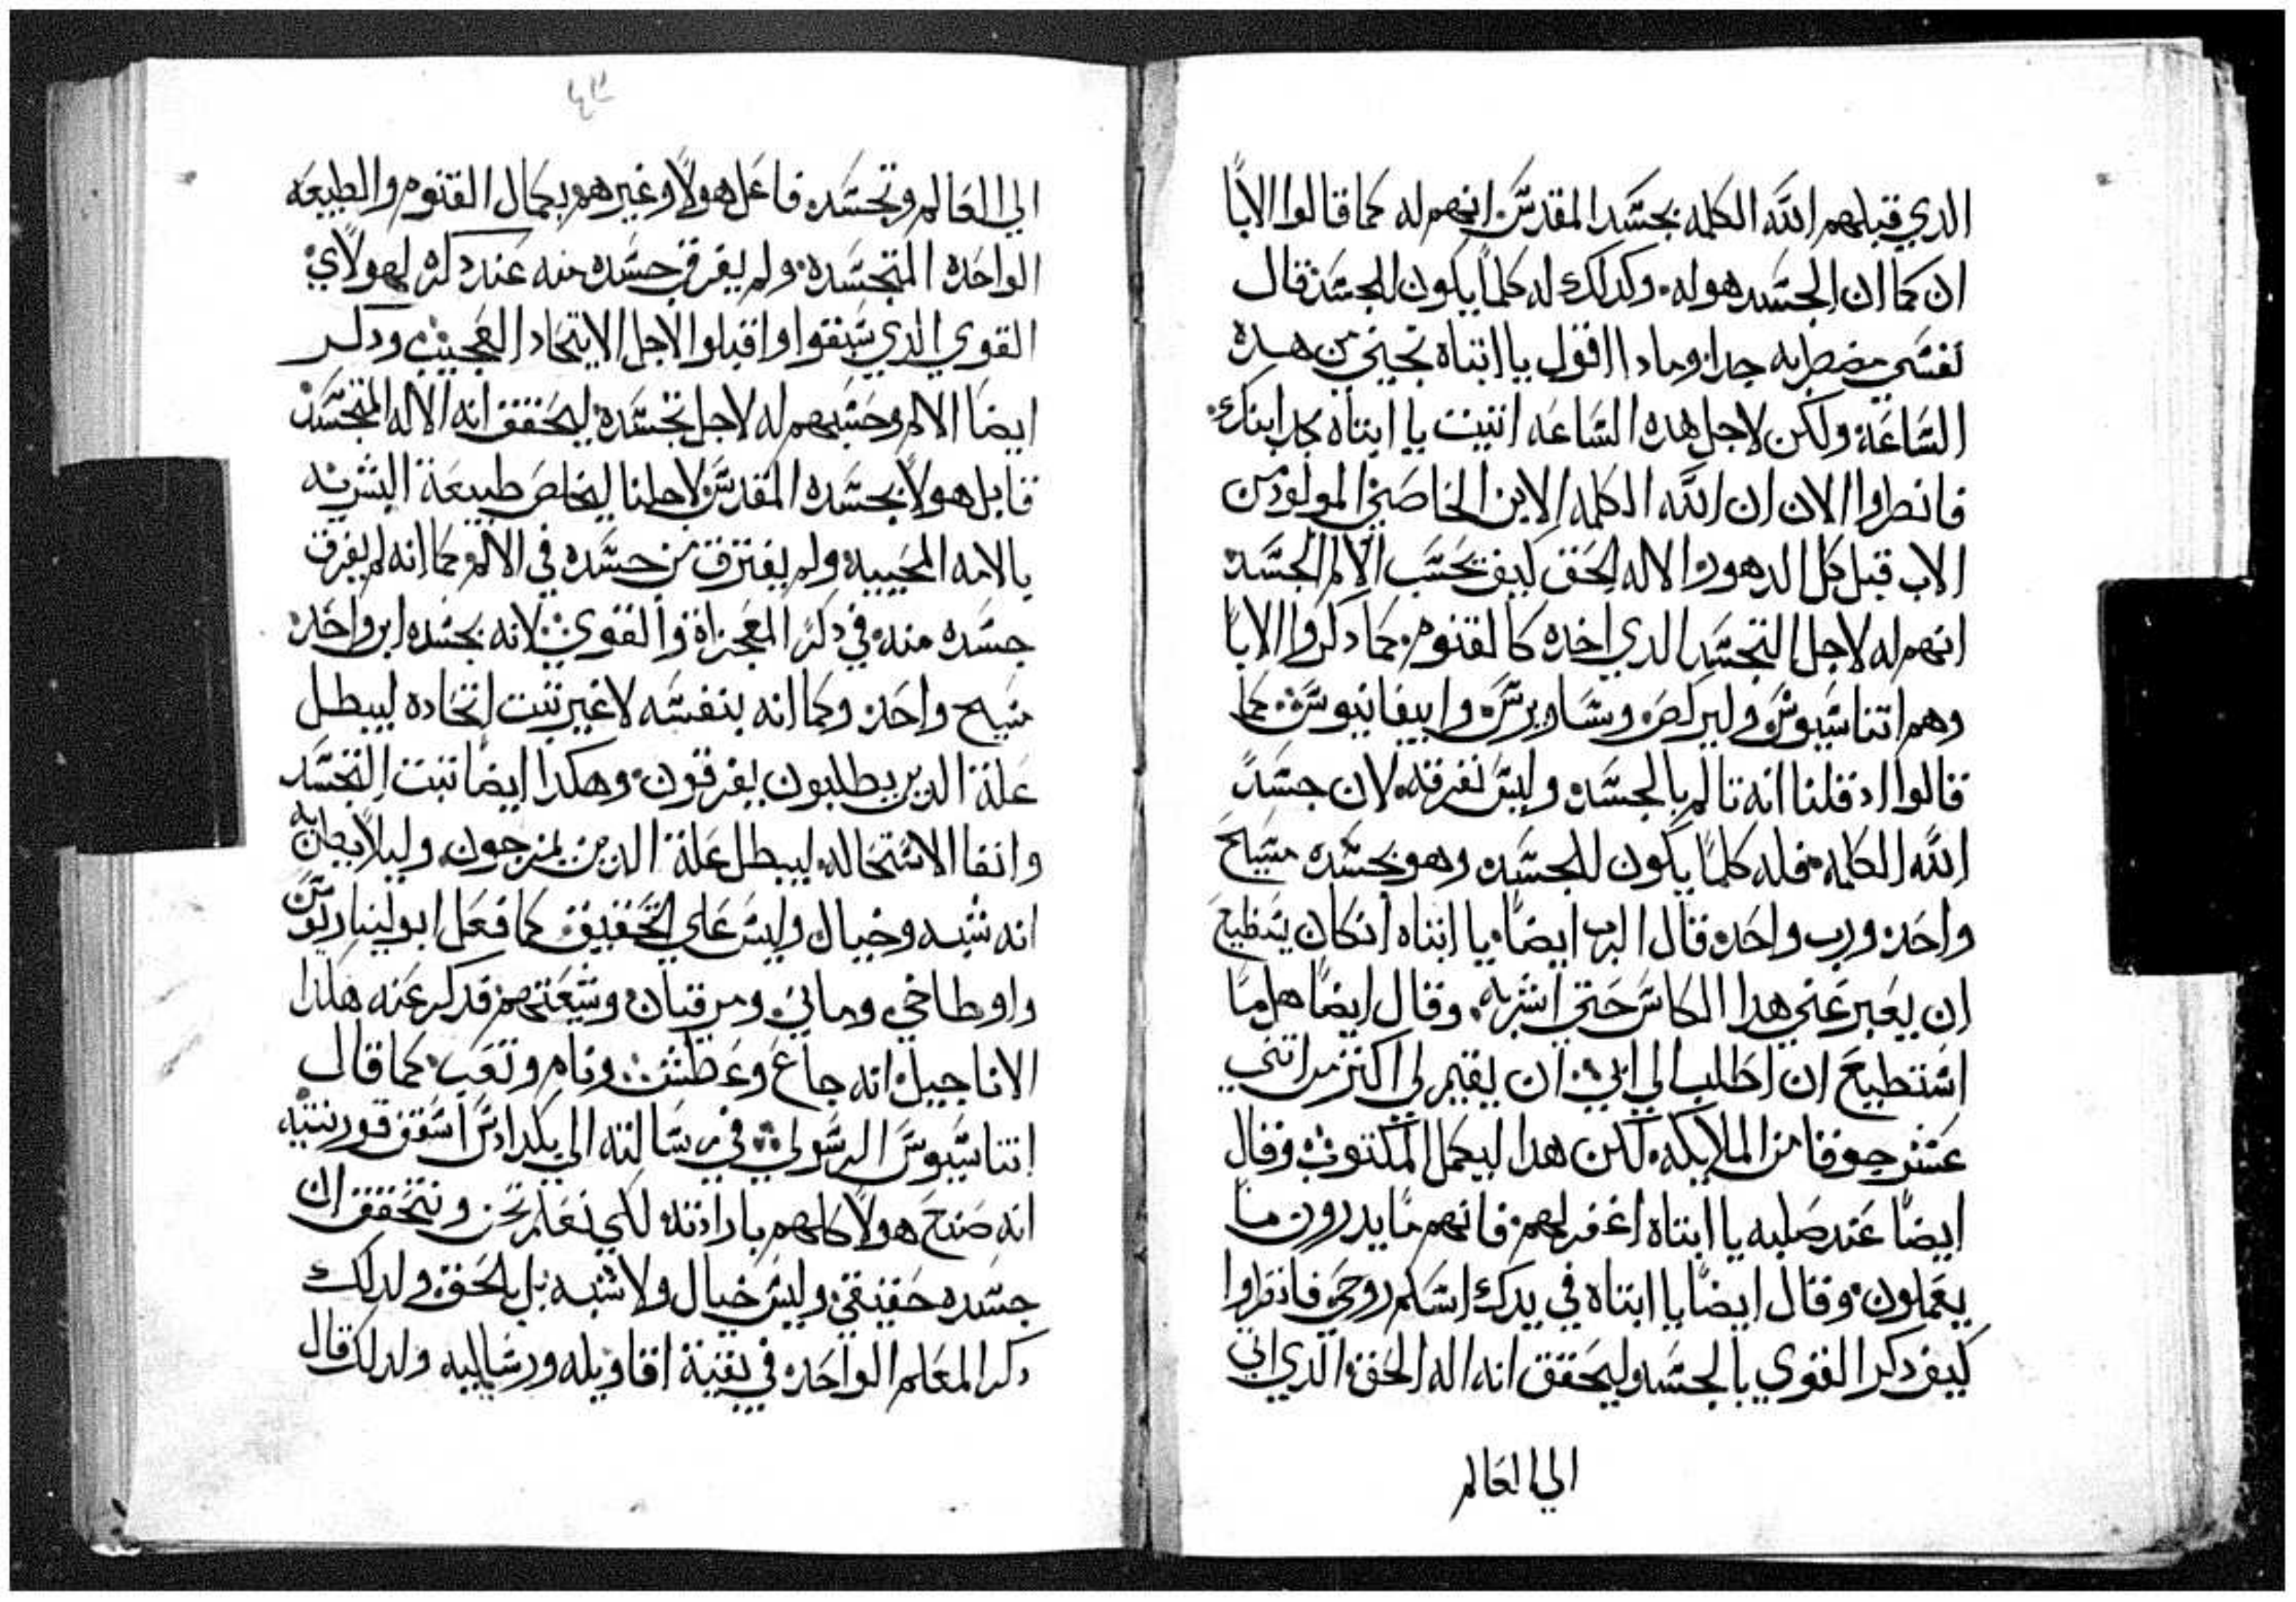 الدي قبلهم الله الكلمه بجسد المقدس انهم له كما قالوا الابا
ان كما ان الجسد هو له وكدلك له كلما يكون للجسد قال
نفسي مضطربه جدا ومادا اقول يا ابتاه نجيني من هده
الساعه ولكن لاجل هده الساعه اتيت يا ابتاه مجد ابنك
فانظروا الان ان الله الكلمه الابن الخاصي المولود من
الاب قبل كل الدهور الاله الحق كيف يحسب الالم الجسد
انهم له لاجل التجسد الدي اخده كالقنوم كما دكروا الابا
وهم اتناسيوس وليركلص وساويرس وابيفانيوس كما
قالوا اد قلنا انه تالم بالجسد وليس نفرقه لان جسد
الله الكلمه فله كلما يكون للجسد وهو بجسده مسيح
واحد ورب واحد قال الرب ايضا يا ابتاه ان كان يستطيع
ان يعبر عني هدا الكاس حتي اشربه وقال ايضا هل ما
استطيع ان اطلب الي ابي ان يقيم لي اكتر من اتني
عشر جوقا من الملايكه لكن هدا ليكمل المكتوب وقال
ايضا عند صلبه يا ابتاه اغفر لهم فانهم ما يدرون ما
يعملون وقال ايضا يا ابتاه في يدك اسلم روحي فانظروا
كيف دكر القوي بالجسد وليحقق انه اله الحق الدي اتي
الي العالم
٤٣
الي العالم وتجسده فاعل هولا وغيرهم بكمال القنوم والطبيعه
الواحده المتجسده ولم يفرق جسده منه عند دكره لهولاي
القوي الدي سبقوا واقبلوا لاجل الاتحاد العجيب ودكر
ايضا الالام وحسبهم له لاجل تجسده ليحقق انه الاله المتجسد
قابل هولا بجسده المقدس لاجلنا ليخلص طبيعة البشريه
بالامه المحييه ولم يفترق من جسده في الالام كما انه لم يفرق
جسده منه في دكر المعجزاة والقوي لانه بجسده ابن واحد
مسيح واحد وكما انه بنفسه لا غير تبت اتحاده ليبطل
علة الدين يطلبون يفرقون وهكدا ايضا تبت التجسد
وانفا الاستحاله ليبطل علة الدين يمزجون وليلا يظن به
انه شبه وخيال وليس علي التحقيق كما فعل ابوليناريوس
واوطاخي وماني ومرقيان وشيعتهم قد كر عنه هكدا
الاناجيل انه جاع وعطش ونام وتعب كما قال
اتناسيوس الرسولي في رسالته الي بكدادس اسقف قورنتيه
انه صنع هولا كلهم بارادته لكي نعلم نحن ونتحقق ان
جسده حقيقي وليس خيال ولا شبه بل بالحق ولدلك
دكر المعلم الواحد في بقية اقاويله ورسايله ولدلك قال